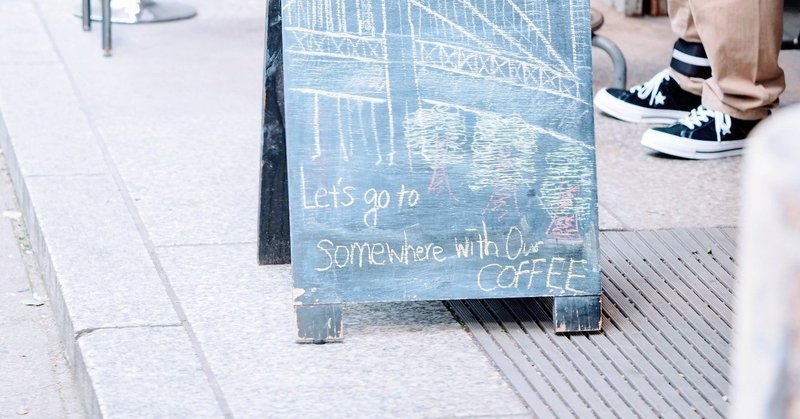 Let's go to
Somewhere with Our
COFFEE